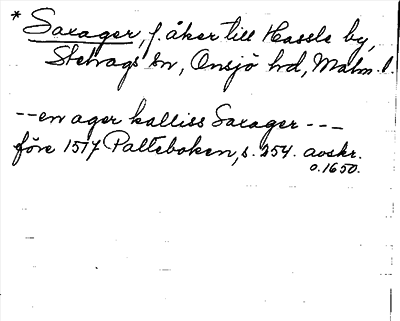 * Saxager, f. åker till Hassle by,
Stehags sn, Onsjö hd, Malm. l.
-- en ager kalliss Saxager ---
före 1517 Palteboken, s. 254. avskr.
o. 1650.